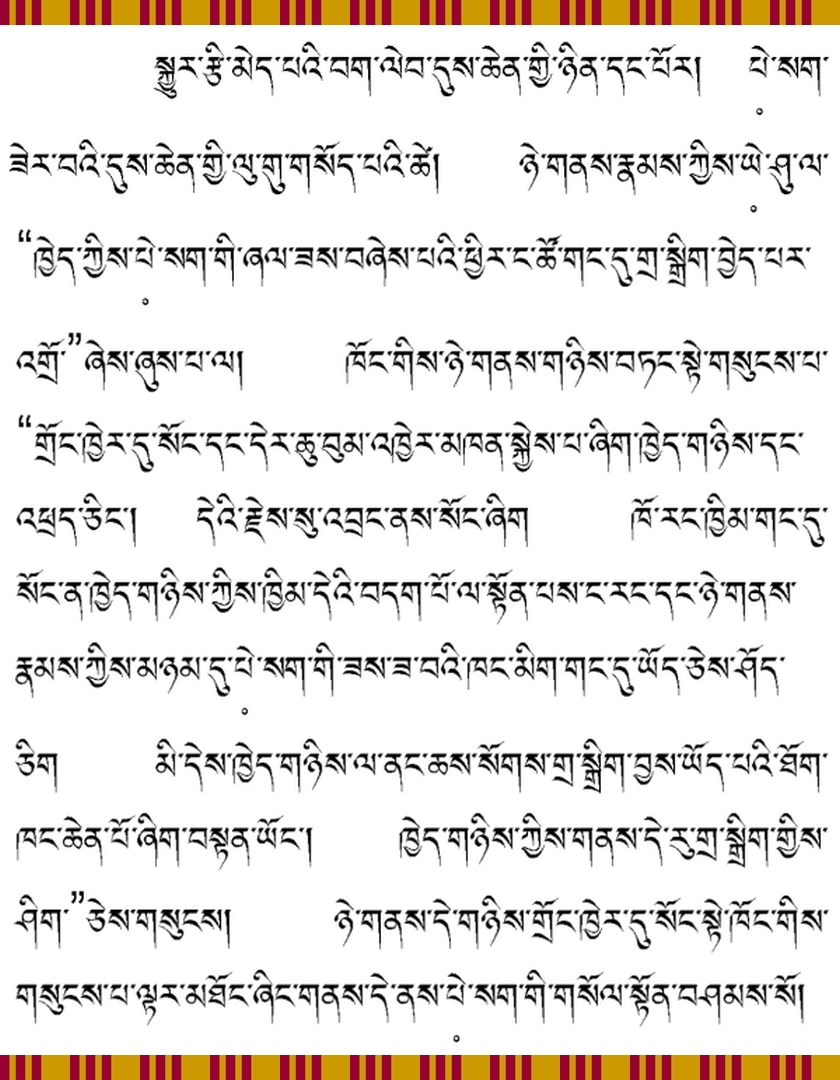 སྐྱུར་རྩི་མེད་པའི་བག་ལེབ་དུས་ཆེན་གྱི་ཉིན་དང་པོར། པེ༷་སག་
ཟེར་བའི་དུས་ཆེན་གྱི་ལུ་གུ་གསོད་པའི་ཚེ། ཉེ་གནས་རྣམས་ཀྱིས་ཡེ༷་ཤུ་ལ་
“ཁྱེད་ཀྱིས་པེ༷་སག་གི་ཞལ་ཟས་བཞེས་པའི་ཕྱིར་ང་ཚོ་གང་དུ་གྲ་སྒྲིག་བྱེད་པར་
འགྲོ་”ཞེས་ཞུས་པ་ལ། ཁོང་གིས་ཉེ་གནས་གཉིས་བཏང་སྟེ་གསུངས་པ་
“གྲོང་ཁྱེར་དུ་སོང་དང་དེར་ཆུ་བུམ་འཁྱེར་མཁན་སྐྱེས་པ་ཞིག་ཁྱེད་གཉིས་དང་
འཕྲད་ཅིང་། དེའི་རྗེས་སུ་འབྲང་ནས་སོང་ཞིག ཁོ་རང་ཁྱིམ་གང་དུ་
སོང་ན་ཁྱེད་གཉིས་ཀྱིས་ཁྱིམ་དེའི་བདག་པོ་ལ་སྟོན་པས་ང་རང་དང་ཉེ་གནས་
རྣམས་ཀྱིས་མཉམ་དུ་པེ༷་སག་གི་ཟས་ཟ་བའི་ཁང་མིག་གང་དུ་ཡོད་ཅེས་ཤོད་
ཅིག མི་དེས་ཁྱེད་གཉིས་ལ་ནང་ཆས་སོགས་གྲ་སྒྲིག་བྱས་ཡོད་པའི་ཐོག་
ཁང་ཆེན་པོ་ཞིག་བསྟན་ཡོང་། ཁྱེད་གཉིས་ཀྱིས་གནས་དེ་རུ་གྲ་སྒྲིག་གྱིས་
ཤིག་”ཅེས་གསུངས། ཉེ་གནས་དེ་གཉིས་གྲོང་ཁྱེར་དུ་སོང་སྟེ་ཁོང་གིས་
གསུངས་པ་ལྟར་མཐོང་ཞིང་གནས་དེ་ནས་པེ༷་སག་གི་གསོལ་སྟོན་བཤམས་སོ།